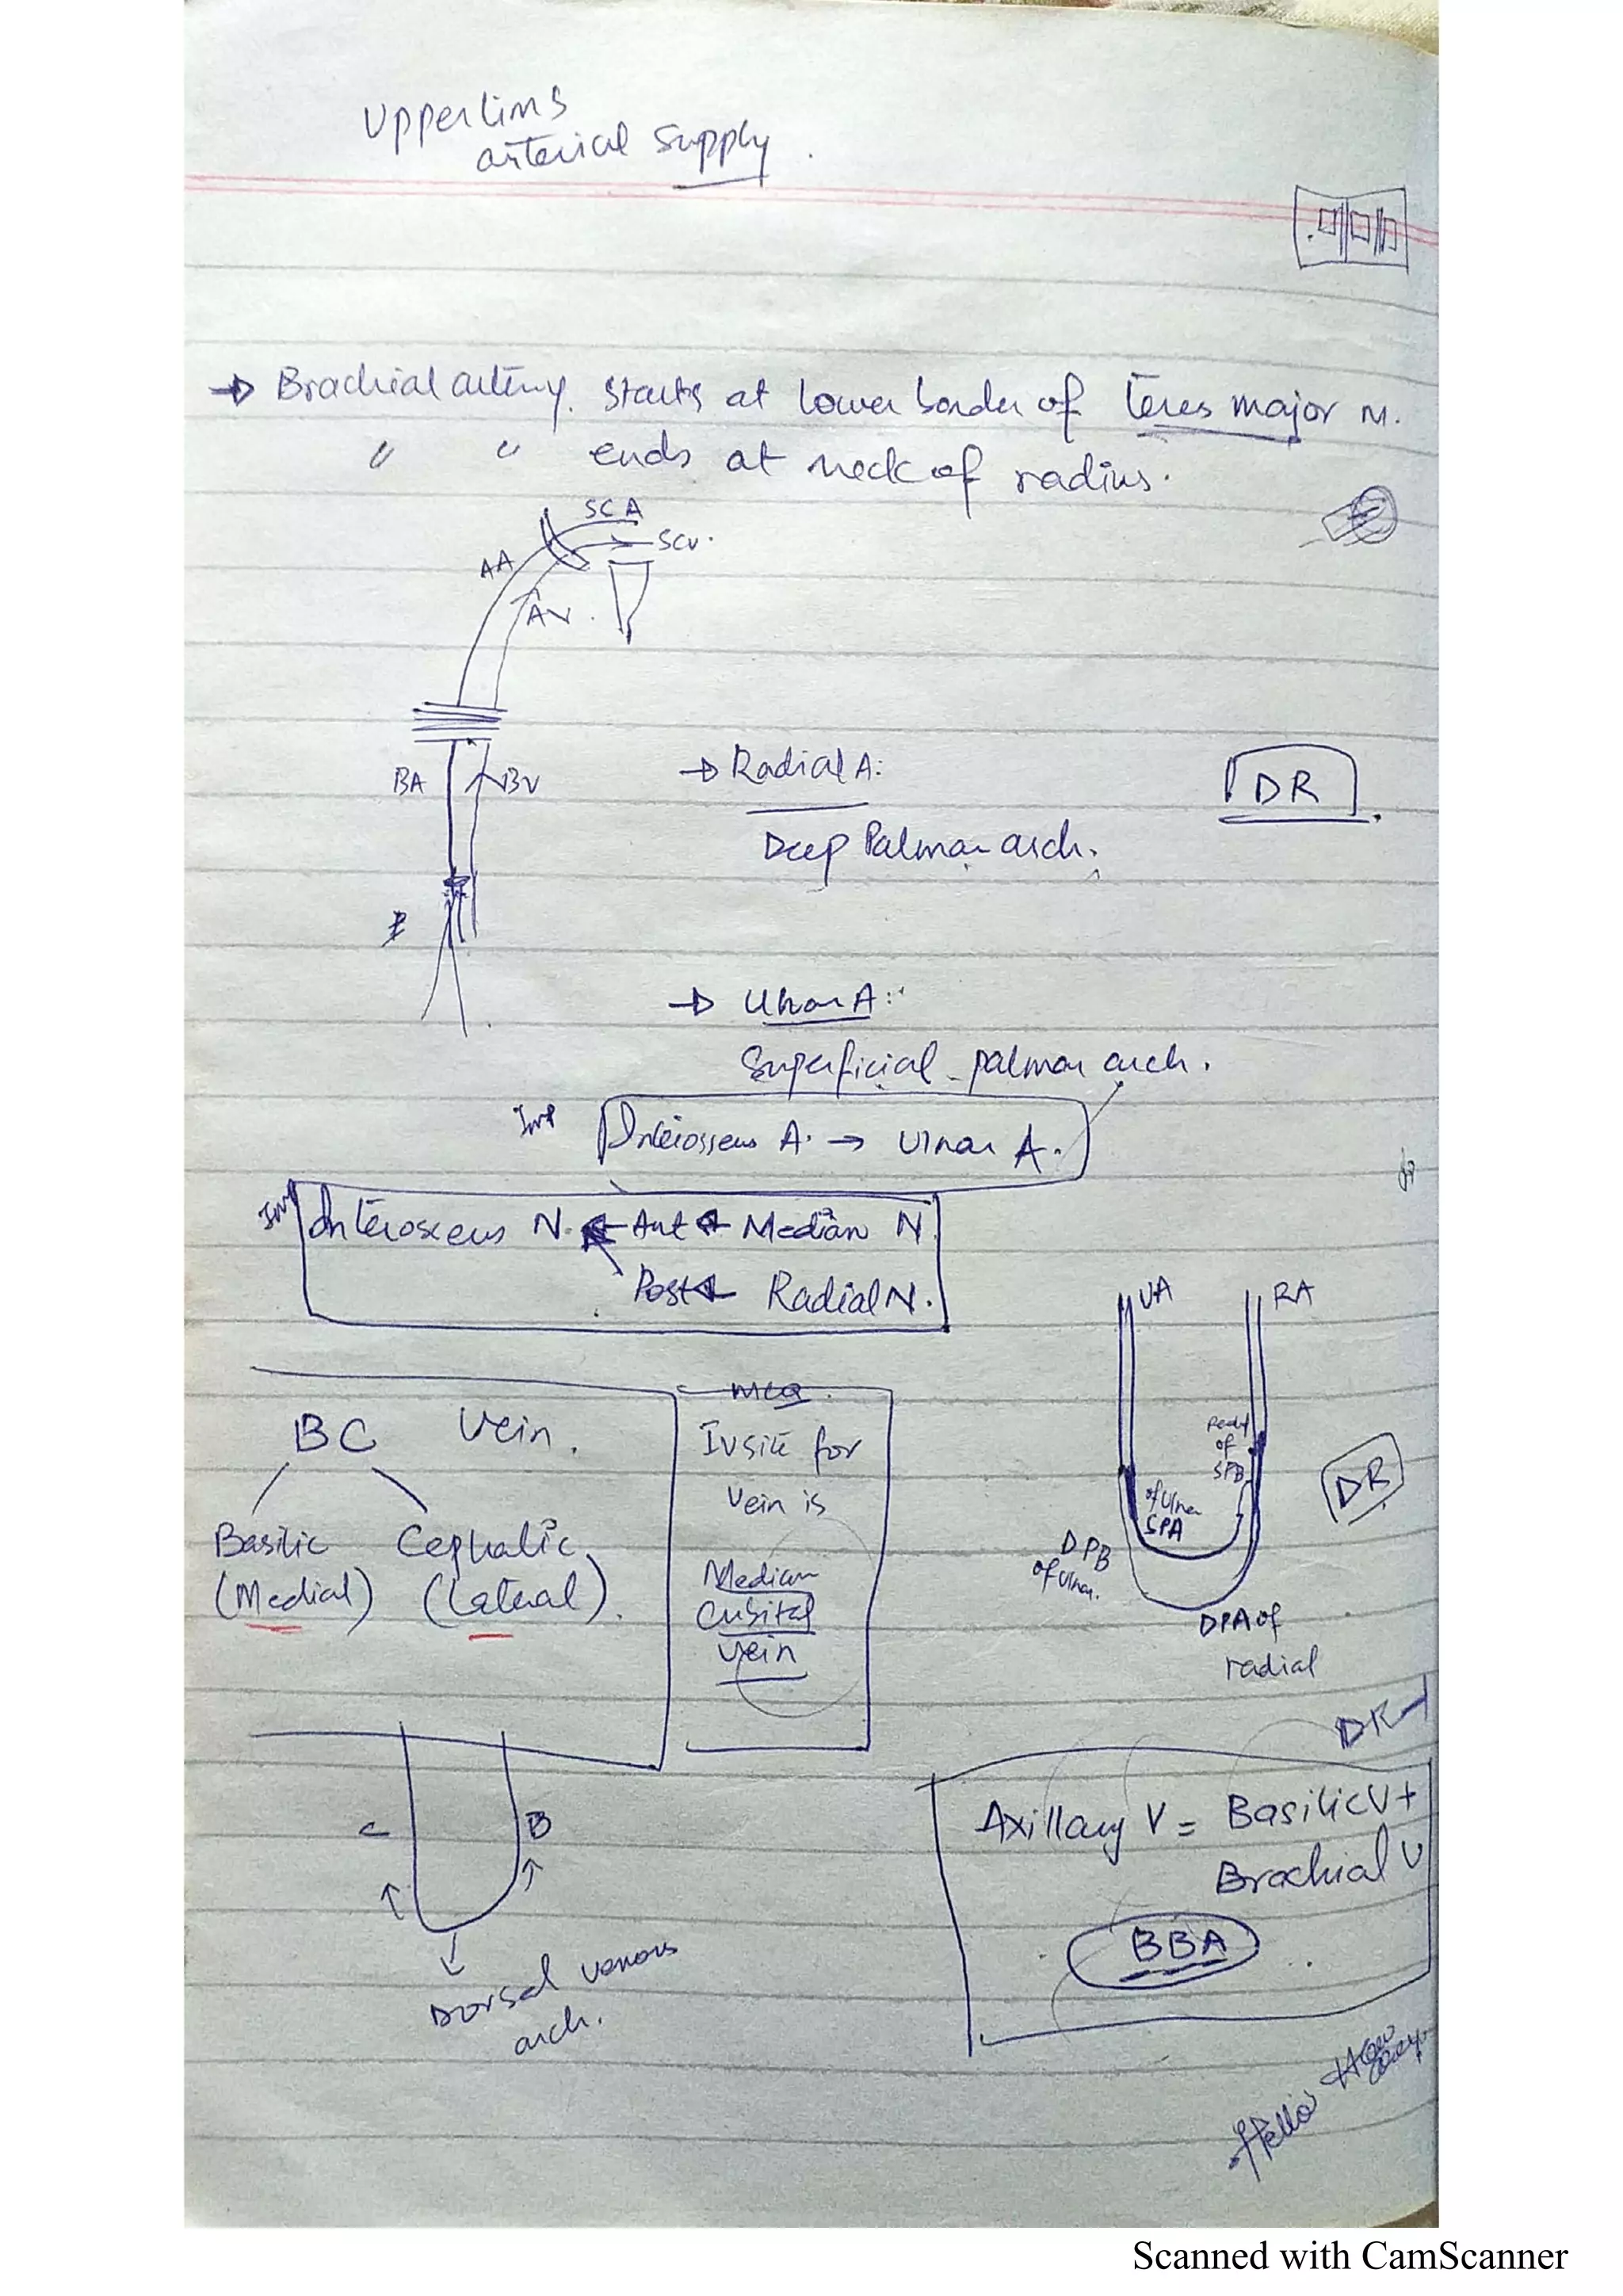 Upper limb
arterial supply.
→ Brachial artery. starts at lower border of teres major M.
" " ends at neck of radius.
SCA
SCV.
AA
AV.
BA
BV
→ Radial A:
DR
Deep Palmar arch.
→ Ulnar A:
Superficial palmar arch.
Imp
Interosseus A. → Ulnar A.
Imp
Interosseus N. ← Ant ← Median N.
Post ← Radial N.
UA
RA
BC Vein.
Basilic
Cephalic
(Medial)
(Lateral).
MCQ.
IV site for
vein is
Median
Cubital
vein
of
SPB
of Ulnar
SPA
DPB
of Ulnar.
DPA of
radial
DR
DR
C
B
Dorsal venous
arch.
Axillary V = Basilic V +
Brachial V
BBA
Hello
Scanned with CamScanner